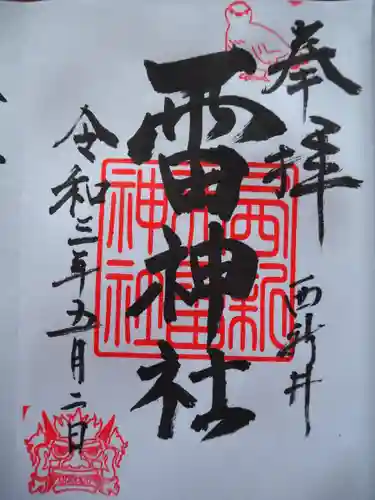 奉拝
西新井
雷神社
西新井雷神社
令和三年五月二日